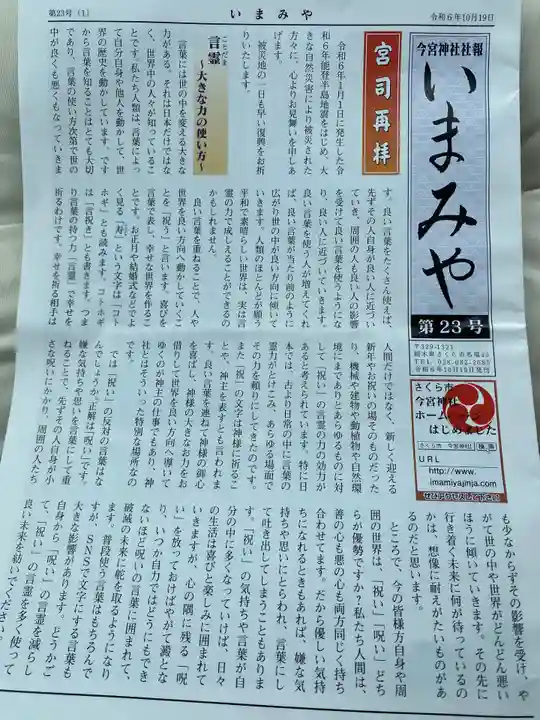 第23号（1）
いまみや
令和６年10月19日
今宮神社社報
いまみや
第２３号
〒329-1321
栃木県さくら市馬場43
TEL 028-682-2687
令和６年10月19日発行
さくら市
今宮神社
ホームページ
はじめました
さくら市　今宮神社　検索
URL
http://www.
imamiyajinja.com
ぜひごらんください
宮司再拝
令和６年１月１日に発生した令
和６年能登半島地震をはじめ、大
きな自然災害により被災された
方々に、心よりお見舞いを申しあ
げます。
被災地の一日も早い復興をお祈
りいたします。
言霊
ことだま
～大きな力の使い方～
言葉には世の中を変える大きな
力がある。それは日本だけではな
く、世界中の人々が知っているこ
とです。私たち人類は、言葉によっ
て自分自身や他人を動かして、世
界の歴史を動かしています。です
から言葉を知ることはとても大切
であり、言葉の使い方次第で世の
中が良くも悪くもなっていきま
す。良い言葉をたくさん使えば、
先ずその人自身が良い人に近づい
ていき、周囲の人も良い人の影響
を受けて良い言葉を使うようにな
り、良い人に近づいていきます。
良い言葉を使う人が増えてくれ
ば、良い言葉が当たり前のように
広がり世の中が良い方向に傾いて
いきます。人類のほとんどが願う
平和で素晴らしい世界は、実は言
霊の力で成しえることができるの
かもしれません。
良い言葉を重ねることで、人や
世界を良い方向へ動かしていくこ
とを「祝う」と言います。喜びを
言葉で表し、幸せな世界を作るこ
とです。お正月や結婚式などでよ
く見る「寿」という文字は「コト
ホギ」とも読みます。コトホギと
は「言祝き」とも書きます。つま
り言葉の持つ力「言霊」で幸せを
祈るわけです。幸せを祈る相手は
人間だけではなく、新しく迎える
新年やお祝いの場そのものだった
り、機械や建物や動植物や自然環
境にまでありとあらゆるものに対
して「祝い」の言霊の力の効力が
あると考えられています。特に日
本では、古より日常の中に言葉の
霊力がとけこみ、あらゆる場面で
その力を頼りにしてきたのです。
また「祝」の文字は神様に祈るこ
とや、神主を表すとも言われま
す。良い言葉を連ねて神様の御心
を喜ばし、神様の大きなお力をお
借りして世界を良い方向へ導いて
ゆくのが神主の仕事でもあり、神
社とはそういった特別な場所なの
です。
では「祝い」の反対の言葉はな
んでしょうか。正解は「呪い」です。
嫌な気持ちや思いを言葉にして重
ねることで、先ずその人自身が小
さな呪いにかかり、周囲の人たち
も少なからずその影響を受け、や
がて世の中や世界がどんどん悪い
ほうに傾いていきます。その先に
行き着く未来に何が待っているの
かは、想像に耐えがたいものがあ
るのだと思います。
ところで、今の皆様方自身や周
囲の世界は、「祝い」「呪い」どち
らが優勢ですか？私たち人間は、
善の心も悪の心も両方同じく持ち
合わせてます。だから優しい気持
ちになれるときもあれば、嫌な気
持ちや思いにとらわれ、言葉にし
て吐き出してしまうこともありま
す。「祝い」の気持ちや言葉が自
分の中に多くなっていけば、日々
の生活は喜びと楽しみに囲まれて
いきますが、心の隅に残る「呪
い」を放っておけばやがて澱とな
り、いつか自力ではどうにもでき
ないほど呪いの言葉に囲まれて、
破滅の未来に舵を取るようになり
ます。普段使う言葉はもちろんで
すが、ＳＮＳで文字にする言葉も
大きな影響があります。どうかご
自身から「呪い」の言霊を減らし
て、「祝い」の言霊を多く使って
良い未来を紡いでください。